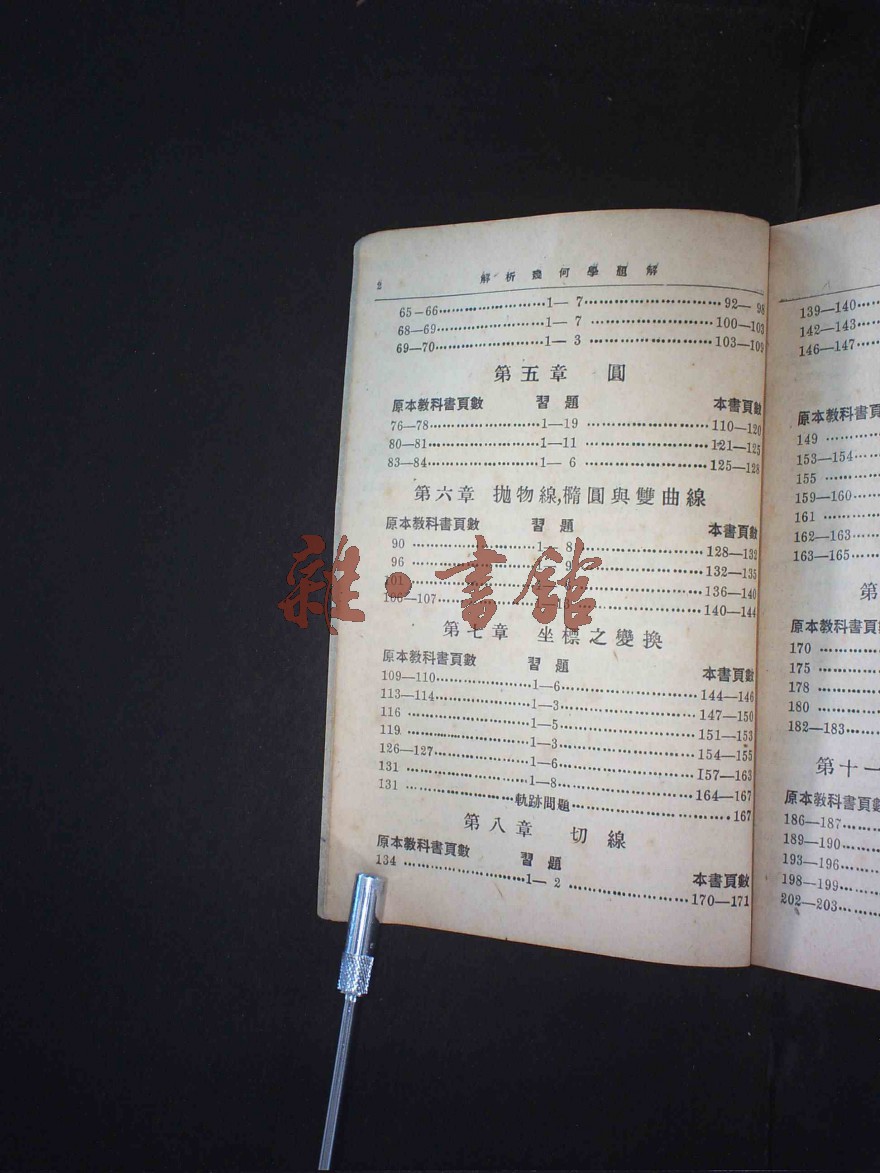 2 解析幾何學題解
65-66 1—7 92—98
68—69 1—7 100—103
69—70 1—3 103—109
第五章 圓
原本教科書頁數 習題 本書頁數
76—78 1—19 110—120
80—81 1—11 121—125
83—84 1—6 125—128
第六章 拋物線,橢圓與雙曲線
原本教科書頁數 習題 本書頁數
90 1—8 128—132
96 132—135
101 136—140
106—107 140—144
雜·書館
第七章 坐標之變換
原本教科書頁數 習題 本書頁數
109—110 1—6 144—146
113—114 1—3 147—150
116 1—5 151—153
119 1—3 154—155
126—127 1—6 157—163
131 1—8 164—167
131 軌跡問題 167
第八章 切線
原本教科書頁數 習題 本書頁數
134 1—2 170—171
139—140
142—143
146—147
原本教科書
149
153—154
155
159—160
161
162—163
163—165
第
原本教科書頁
170
175
178
180
182—183
第十一
原本教科書頁數
186—187
189—190
193—196
198—199
202—203